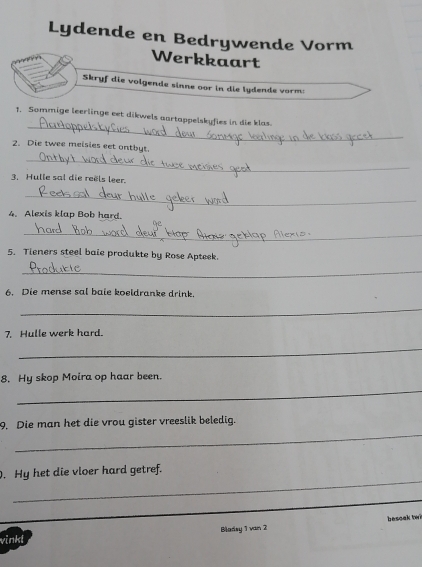 Lydende en Bedrywende Vorm
Werkkaart
Skryf die volgende sinne oor in die lydende vorm:
1. Sommige leerlinge eet dikwels aartappelskyfies in die klas.
Aartappelskyfies word deur sommige leerlinge in die klas geeet
2. Die twee meisies eet ontbyt.
Ontbyt word deur die twee meisies geet
3. Hulle sal die reëls leer.
Reels sal deur hulle geleer word
4. Alexis klap Bob hard.
hard Bob word deur geklap Alexis.
5. Tieners steel baie produkte by Rose Apteek.
Produkte
6. Die mense sal baie koeldranke drink.
7. Hulle werk hard.
8. Hy skop Moira op haar been.
9. Die man het die vrou gister vreeslik beledig.
0. Hy het die vloer hard getref.
Bladsy 1 van 2
besoek twi
winkl